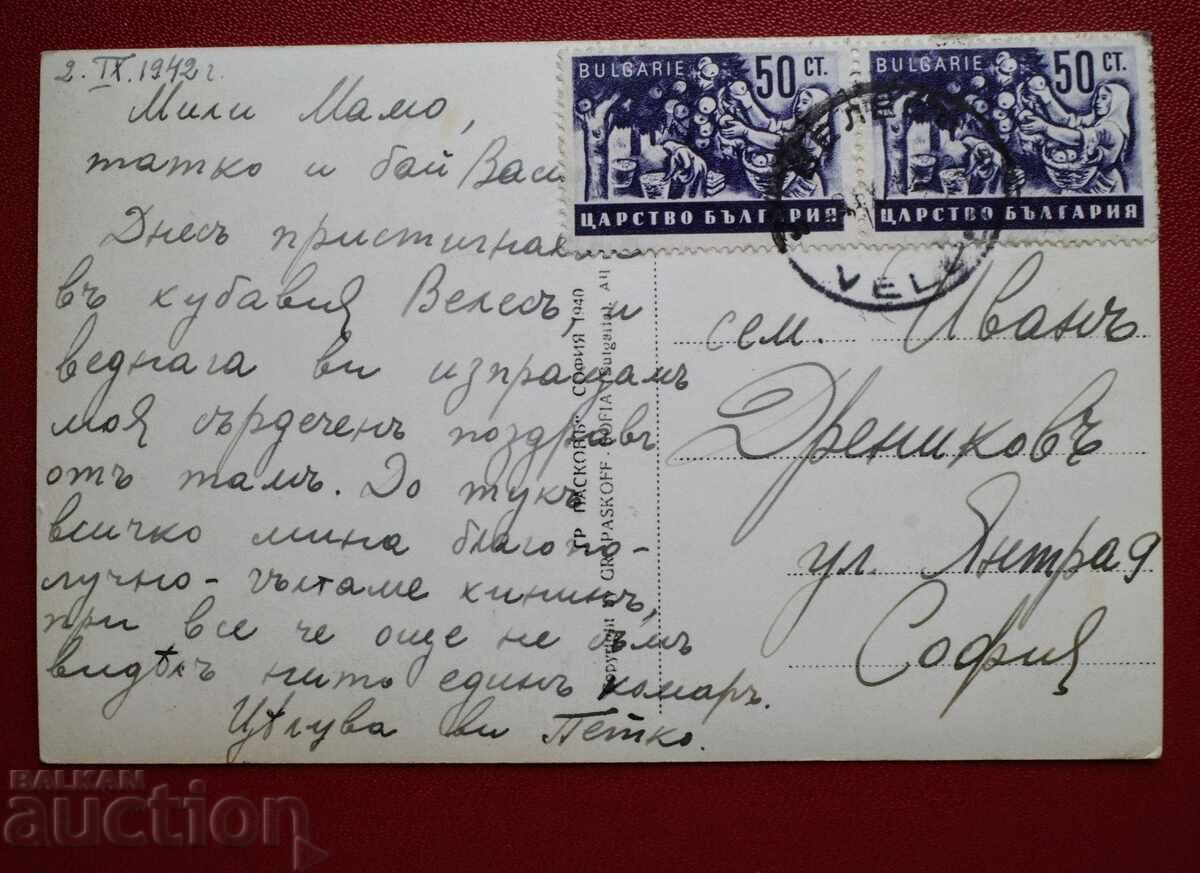 2. IX. 1942 г.
Мили Мамо,
татко и бай Васи
Днесъ пристигнах
въ хубавия Велесъ и
веднага ви изпращамъ
моя сърдеченъ поздравъ
отъ тамъ. До тукъ
всичко мина благопо-
лучно - гълтаме хининъ,
при все че още не съмъ
видѣлъ нито единъ комаръ.
Цѣлува ви Петко.
BULGARIE 50 СТ.
ЦАРСТВО БЪЛГАРИЯ
BULGARIE 50 СТ.
ЦАРСТВО БЪЛГАРИЯ
ВЕЛЕ
VEL
ГР ПАСКОВЪ СОФИЯ 1940
Copyright GR. PASKOFF - SOFIA (Bulgarie)
сем. Иванъ
Дрениковъ
ул. Янтра 9
София
BALKAN
auction